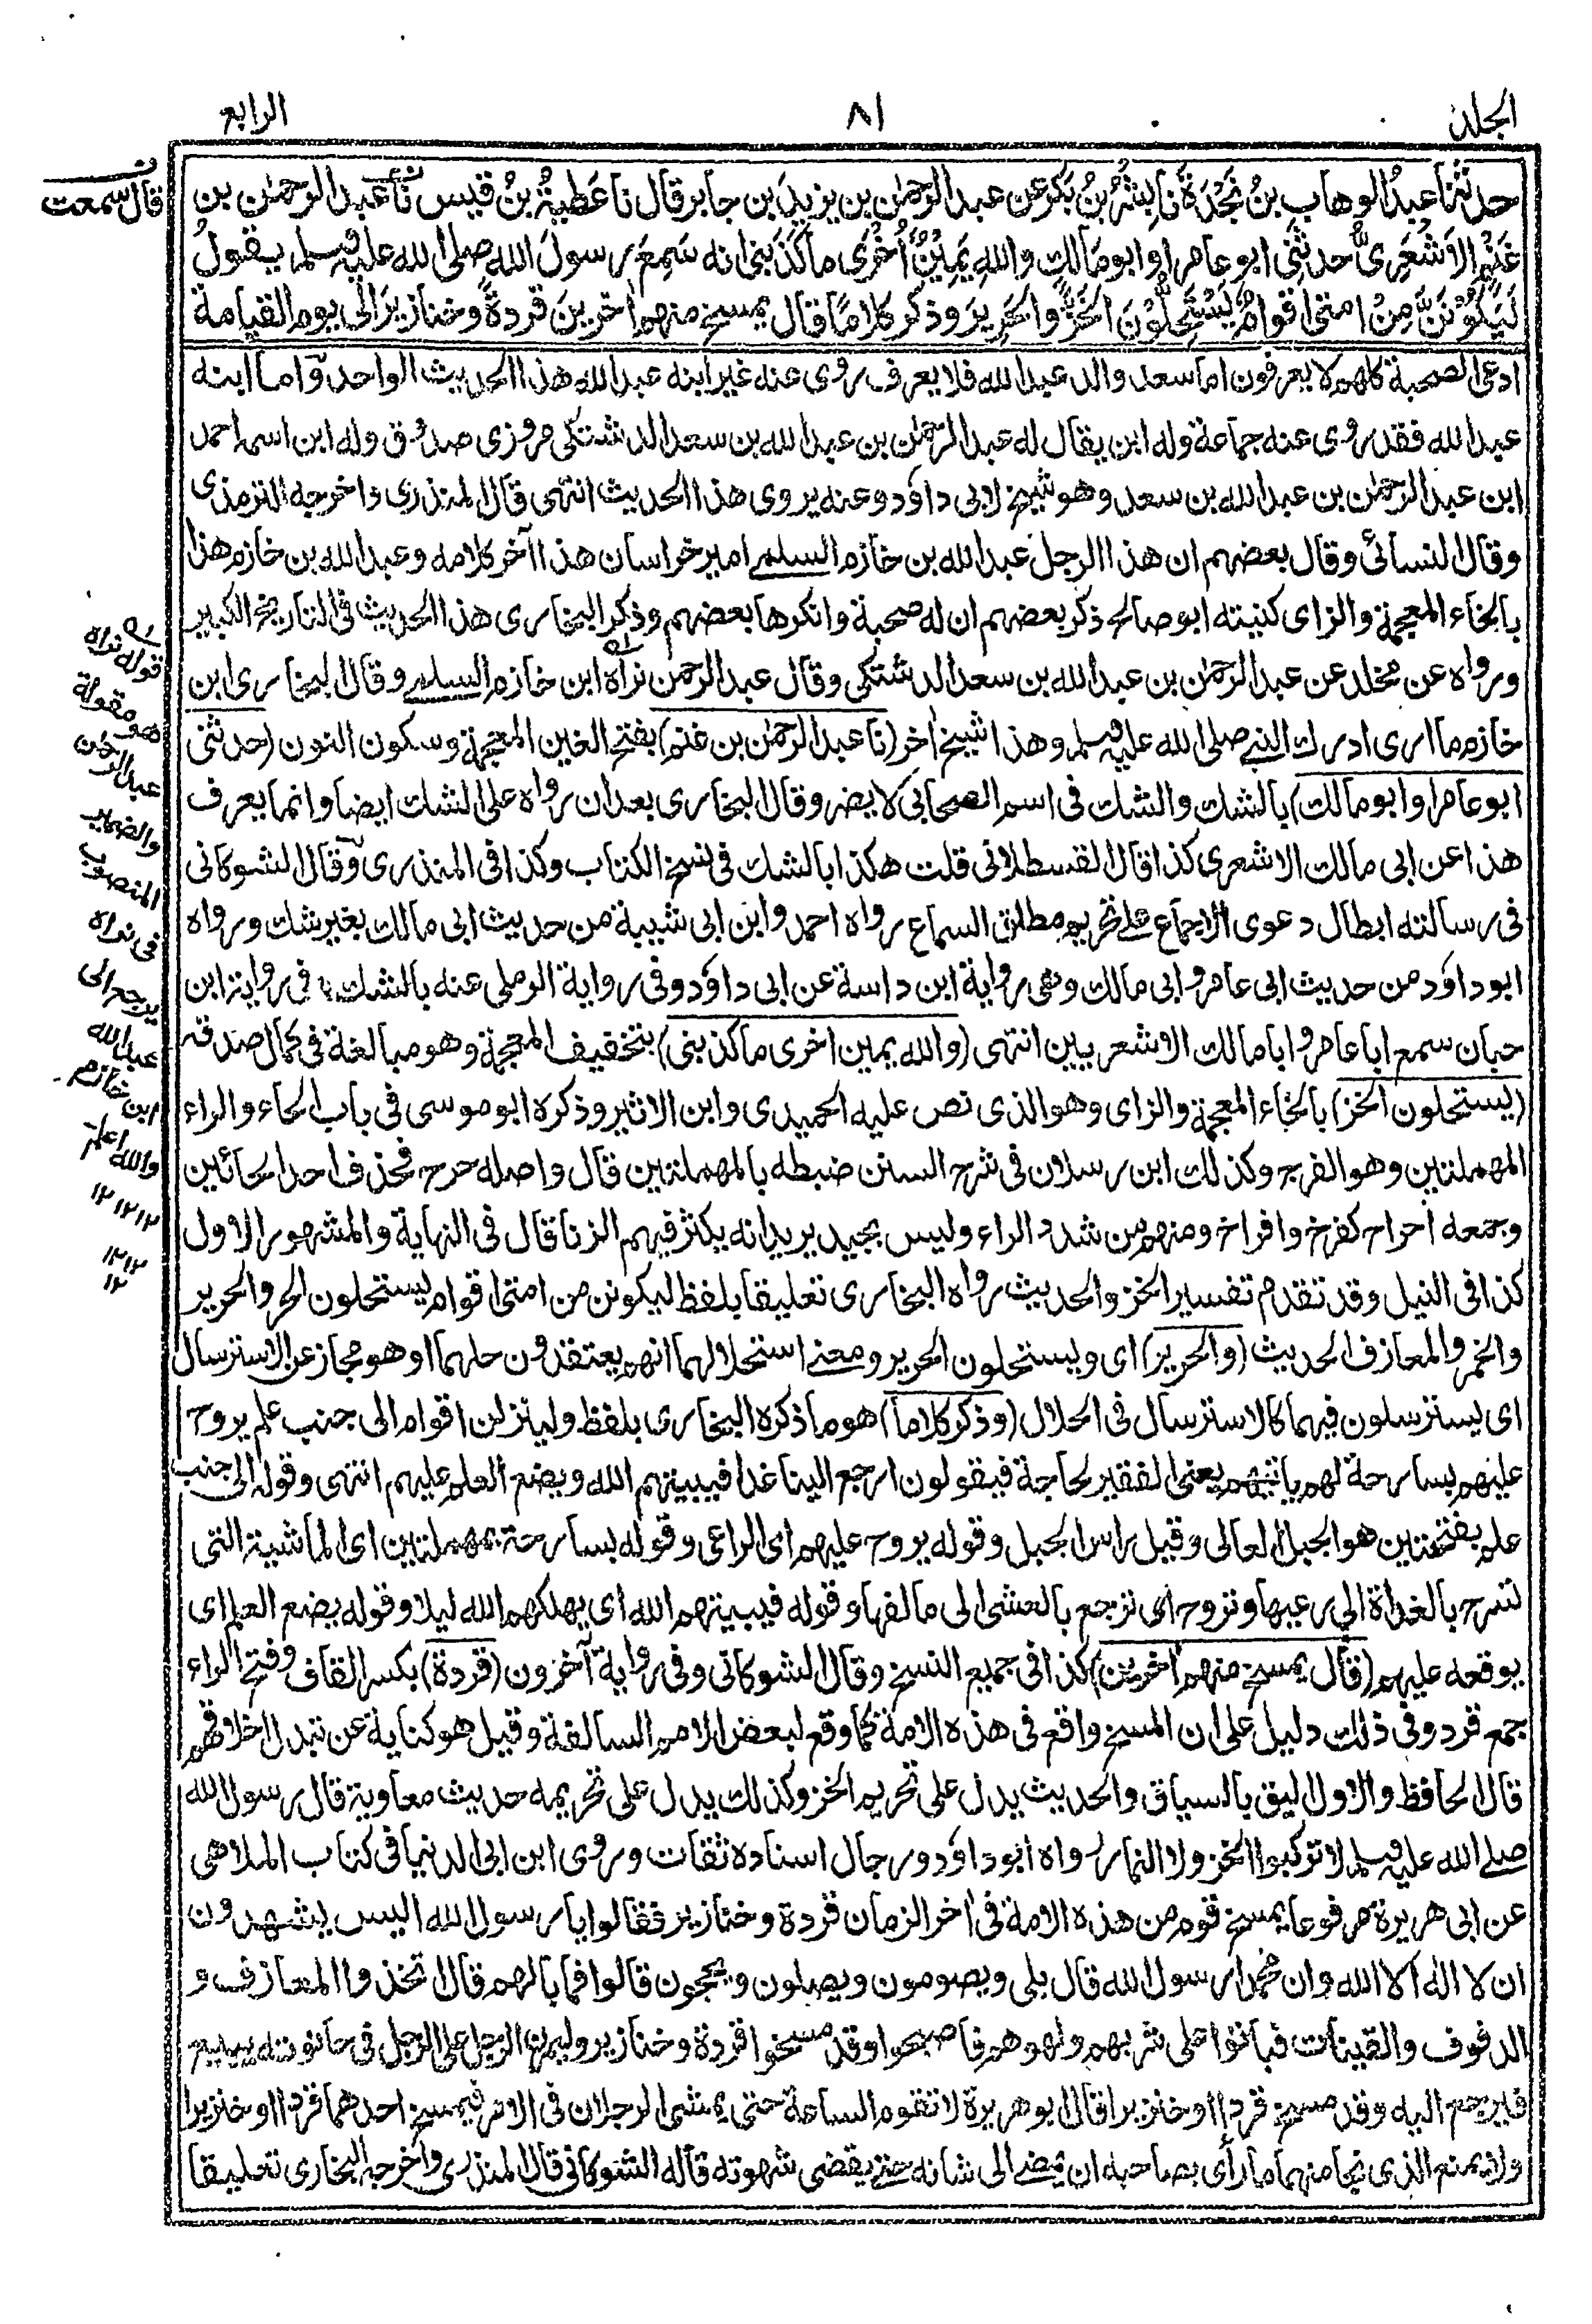 الجلد
٨١
الرابع
حدثنا عبدُ الوهاب بنُ نَجْدَةَ نا بِشْرُ بنُ بَكْرٍ عن عبد الرحمٰن بن يزيدَ بن جابر قال نا عَطِيةُ بنُ قيس نا عبد الرحمٰن بن
غَنْمٍ الاَشْعَرِىُّ حدثنى ابو عامر او ابو مَالك واللهِ يَمِيْنٌ اُخْرٰى ما كَذَبَنى انه سَمِعَ رسولَ الله صلى الله عليه وسلم يقولُ
لَيَكُوْنَنَّ مِنْ امتى اقوامٌ يَسْتَحِلُّوْنَ الخَزَّ والحَرِيرَ وذَكَر كلامًا قال يمسخ منهم اٰخرينَ قردةً وخنازيرَ الٰى يوم القيامة
ادعى الصحبة كلهم لا يعرفون اما سعد والد عبد الله فلا يعرف روى عنه غير ابنه عبد الله هذا الحديث الواحد واما ابنه
عبد الله فقد روى عنه جماعة وله ابن يقال له عبد الرحمٰن بن عبد الله بن سعد الدشتكى مروزى صدوق وله ابن اسمه احمد
ابن عبد الرحمٰن بن عبد الله بن سعد وهو شيخ لابى داود وعنه يروى هذا الحديث انتهى قال المنذرى واخرجه الترمذى
وقال النسائى وقال بعضهم ان هذا الرجل عبد الله بن خازم السلمى امير خراسان هذا آخر كلامه وعبد الله بن خازم هذا
بالخاء المعجمة والزاى كنيته ابو صالح ذكر بعضهم ان له صحبة وانكرها بعضهم وذكر البخارى هذا الحديث فى التاريخ الكبير
ورواه عن مخلد عن عبد الرحمٰن بن عبد الله بن سعد الدشتكى وقال عبد الرحمٰن نراه ابن خازم السلمى وقال البخارى ابن
خازم ما ارى ادرك النبى صلى الله عليه وسلم وهذا شيخ اٰخر (نا عبد الرحمٰن بن غنم) بفتح الغين المعجمة وسكون النون (حدثنى
ابو عامر او ابو مالك) بالشك والشك فى اسم الصحابى لا يضر وقال البخارى بعد ان رواه على الشك ايضا وانما يعرف
هذا عن ابى مالك الاشعرى كذا قال القسطلانى قلت هكذا بالشك فى نسخ الكتاب وكذا فى المنذرى وقال الشوكانى
فى رسالته ابطال دعوى الاجماع على تحريم مطلق السماع رواه احمد وابن ابى شيبة من حديث ابى مالك بغير شك ورواه
ابو داود من حديث ابى عامر وابى مالك وهى رواية ابن داسة عن ابى داود وفى رواية الرملى عنه بالشك وفى رواية ابن
حبان سمع ابا عامر وابا مالك الاشعريين انتهى (والله يمين اخرى ما كذبنى) بتخفيف المعجمة وهو مبالغة فى كمال صدقه
(يستحلون الخز) بالخاء المعجمة والزاى وهو الذى نص عليه الحميدى وابن الاثير وذكره ابو موسى فى باب الحاء والراء
المهملتين وهو الفرج وكذلك ابن رسلان فى شرح السنن ضبطه بالمهملتين قال واصله حرح فحذف احد الحائين
وجمعه احراح كفرخ وافراخ ومنهم من شدد الراء وليس بجيد يريد انه يكثر فيهم الزنا قال فى النهاية والمشهور الاول
كذا فى النيل وقد تقدم تفسير الخز والحديث رواه البخارى تعليقا بلفظ ليكونن من امتى اقوام يستحلون الحر والحرير
والخمر والمعازف الحديث (والحرير) اى ويستحلون الحرير ومعنى استحلالهما انهم يعتقدون حلهما او هو مجاز عن الاسترسال
اى يسترسلون فيهما كالاسترسال فى الحلال (وذكر كلاما) هو ما ذكره البخارى بلفظ ولينزلن اقوام الى جنب علم يروح
عليهم بسارحة لهم ياتيهم يعنى الفقير لحاجة فيقولون ارجع الينا غدا فيبيتهم الله ويضع العلم عليهم انتهى وقوله الى جنب
علم بفتحتين هو الجبل العالى وقيل راس الجبل وقوله يروح عليهم اى الراعى وقوله بسارحة بمهملتين اى الماشية التى
تسرح بالغداة الى رعيها وتروح اى ترجع بالعشى الى مالفها وقوله فيبيتهم الله اى يهلكهم الله ليلا وقوله يضع العلم اى
يوقعه عليهم (قال يمسخ منهم اٰخرين) كذا فى جميع النسخ وقال الشوكانى وفى رواية آخرون (قردة) بكسر القاف وفتح الراء
جمع قرد وفى ذلك دليل على ان المسخ واقع فى هذه الامة كما وقع لبعض الامم السالفة وقيل هو كناية عن تبدل اخلاقهم
قال الحافظ والاول اليق بالسياق والحديث يدل على تحريم الخز وكذلك يدل على تحريمه حديث معاوية قال رسول الله
صلى الله عليه وسلم لا تركبوا الخز ولا النمار رواه ابو داود ورجال اسناده ثقات وروى ابن ابى الدنيا فى كتاب الملاهى
عن ابى هريرة مرفوعا يمسخ قوم من هذه الامة فى اٰخر الزمان قردة وخنازير فقالوا يا رسول الله اليس يشهدون
ان لا اله الا الله وان محمدا رسول الله قال بلى ويصومون ويصلون ويحجون قالوا فما بالهم قال اتخذوا المعازف و
الدفوف والقينات فباتوا على شربهم ولهوهم فاصبحوا وقد مسخوا قردة وخنازير وليمرن الرجل على الرجل فى حانوته يبيع
فيرجع اليه وقد مسخ قردا او خنزيرا قال ابو هريرة لا تقوم الساعة حتى يمشى الرجلان فى الامر فيمسخ احدهما قردا او خنزيرا
ولا يمنع الذى نجا منهما ما رأى بصاحبه ان يمضى الى شانه حتى يقضى شهوته قاله الشوكانى قال المنذرى واخرجه البخارى تعليقا
ن
قال سمعت
قوله نراه
هو مقولة
عبد الرحمٰن
والضمير
المنصوب
فى نراه
يرجع الى
عبد الله
ابن خازم
والله اعلم
١٢ ١٢ ١٢
١٢ ١٢
١٢